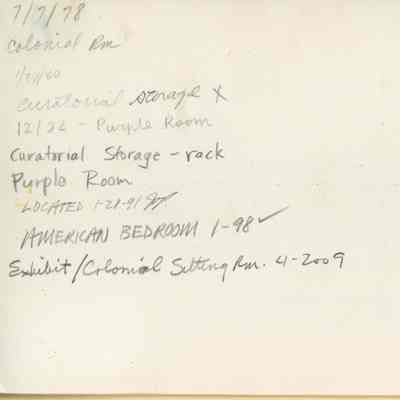 7/7/78
Colonial Rm
Curatorial Storage X
12/22 - Purple Room
Curatorial Storage - rack
Purple Room
LOCATED 1-21-91
AMERICAN BEDROOM 1-98 ✓
Exhibit/Colonial Sitting Rm. 4-2009